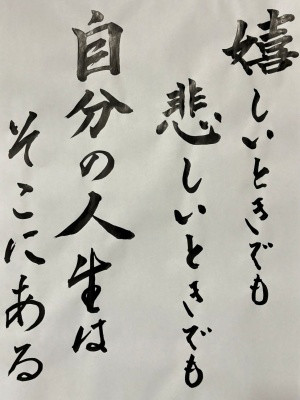 嬉しいときでも
悲しいときでも
自分の人生は
そこにある